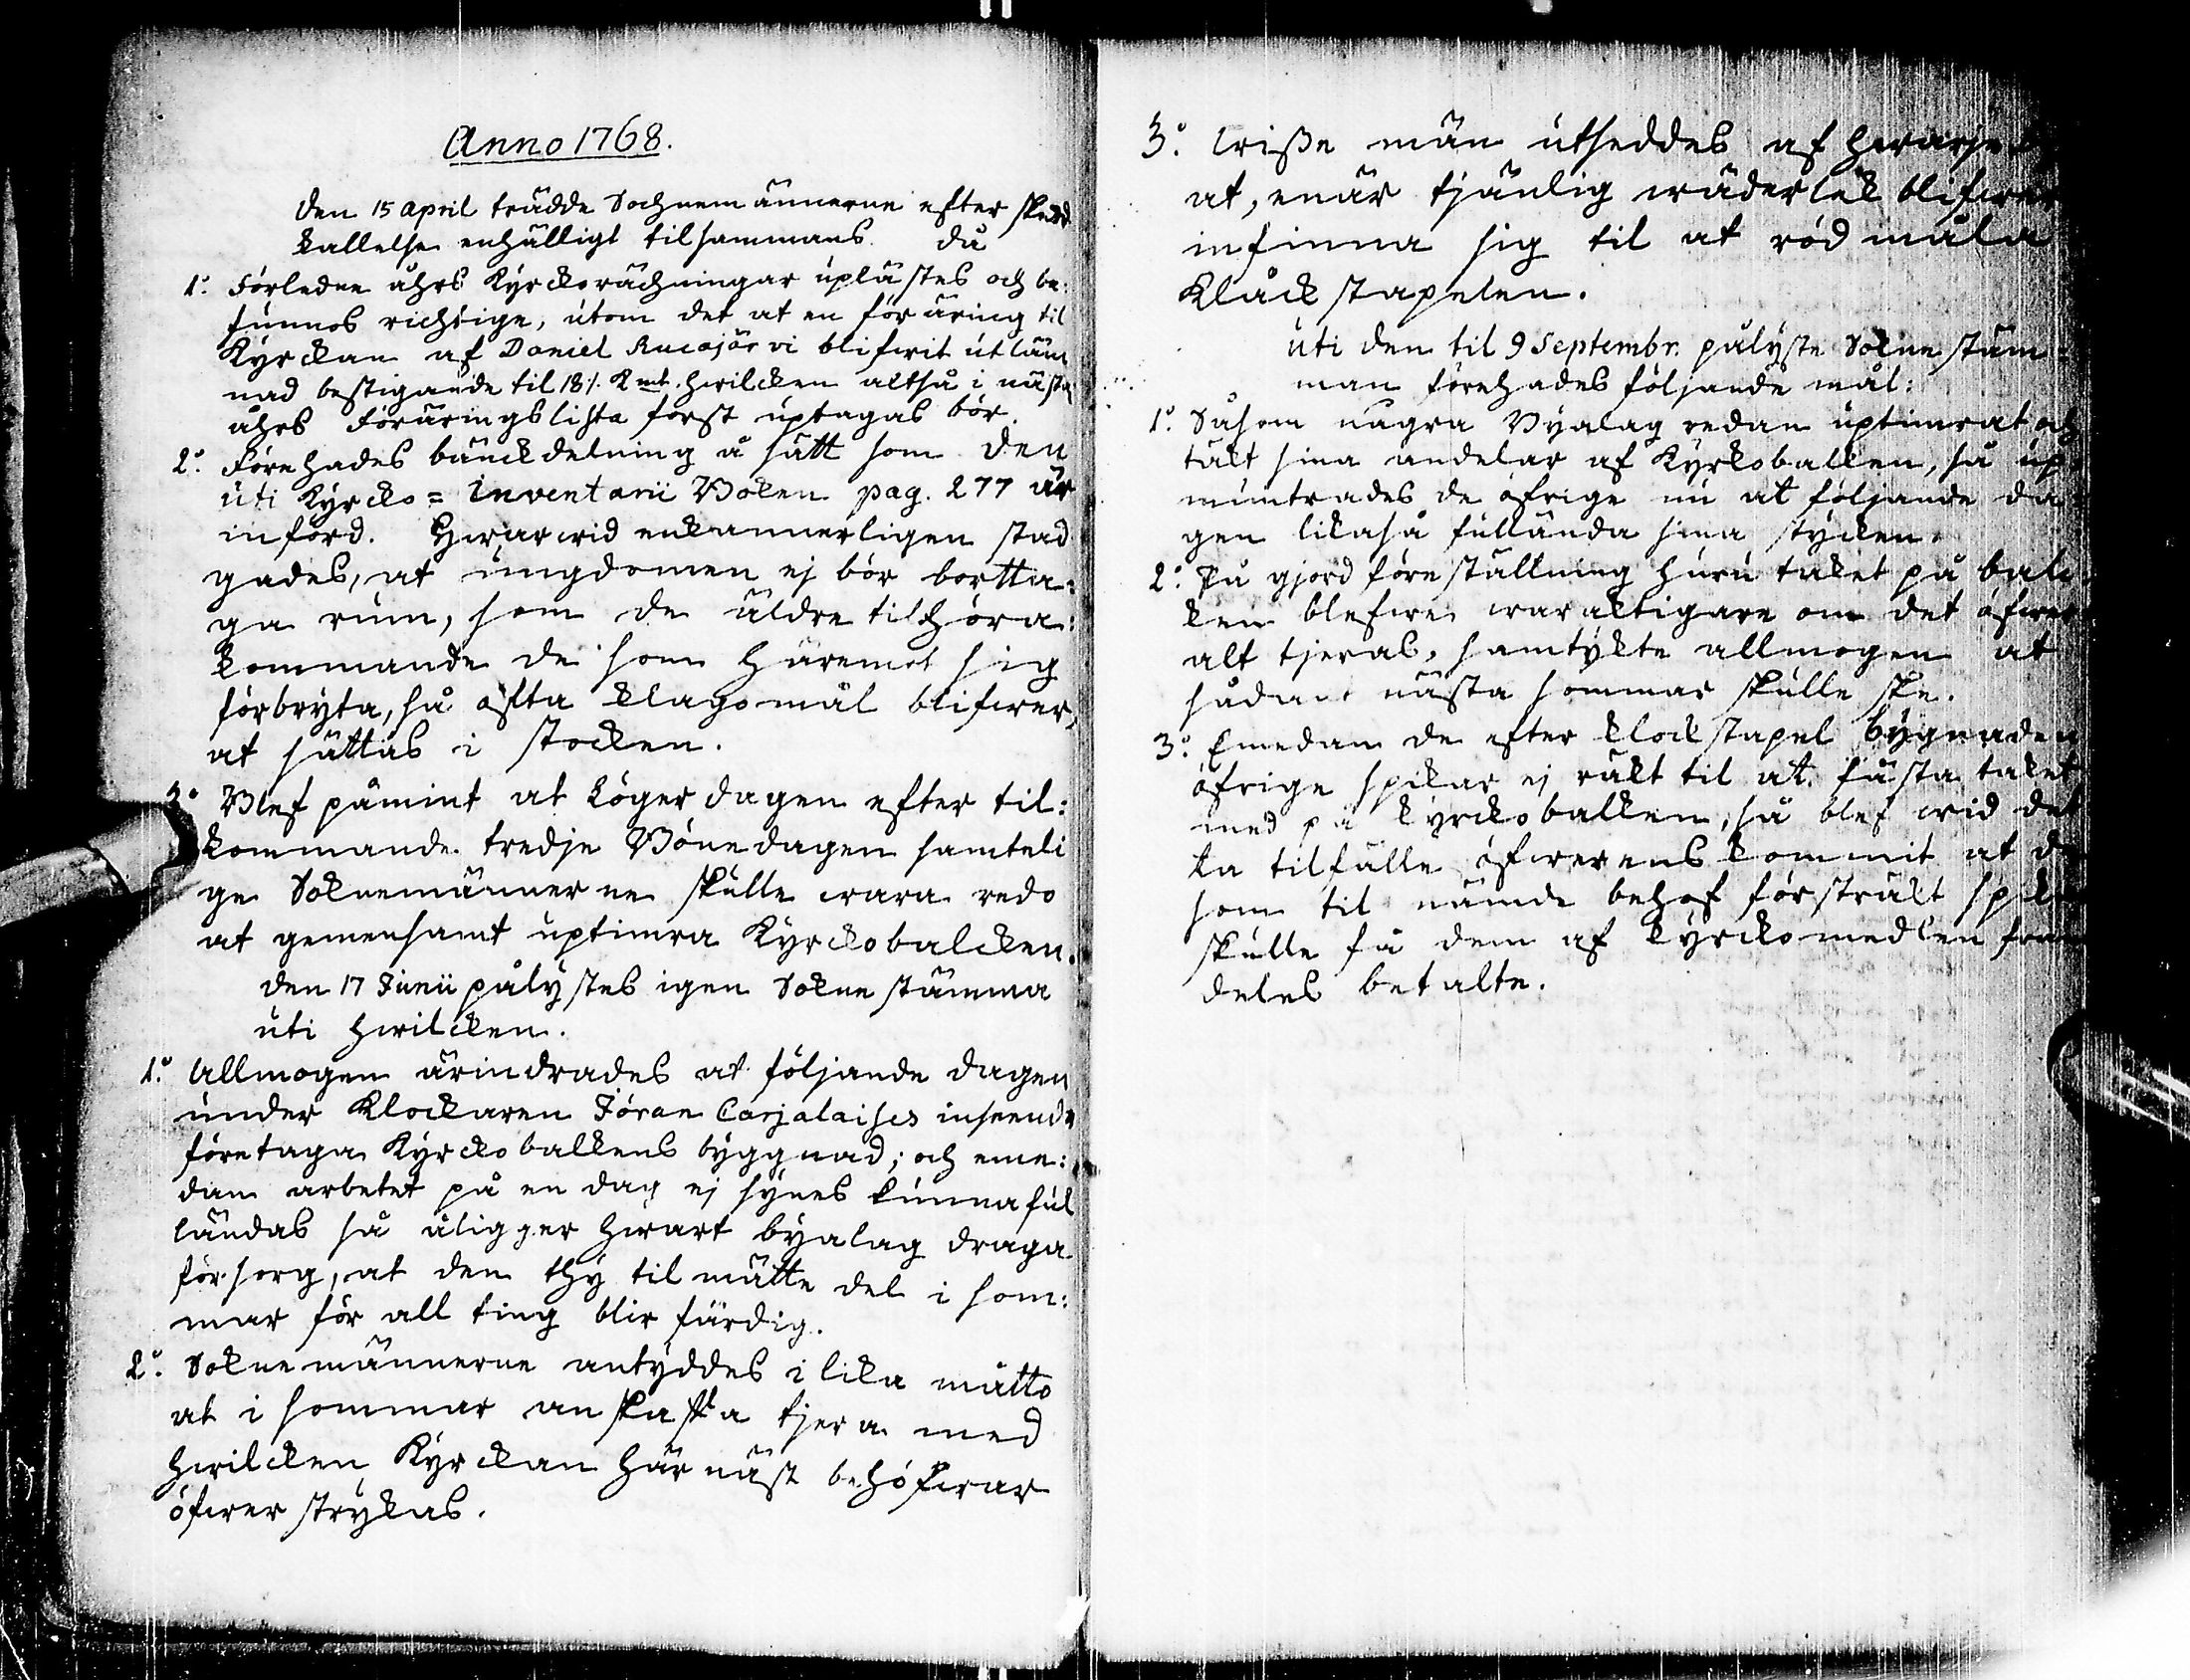 Anno 1768.
den 15 april trädde Sochnemännerne efter skedd
kallelse enhälligt tilsammans. då
1:o Förledne åhrs Kyrckorächningar uplästes och be-
funnos richtige, utom det at en föräring til
Kyrckan af Daniel Rucajärvi blifwit utläm
nad bestigande til 18:/. Kmt. hwilcken altså i nästa
åhrs Föräringslista först uptagas bör.
2:o Förehades bänckdelning å sätt som den
uti Kyrcko= Inventarii Boken pag. 277 är
införd. Hwarwid enkannerligen stad
gades, at ungdomen ej bör bortta:
ga rum, som de äldre tilhöra:
kommande de som häremot sig
förbryta, så ofta klagomål blifwer,
at sättias i stocken.
3:o Blef påmint at Lögerdagen efter til:
kommande tredje Bönedagen samteli
ge Soknemännerne skulle wara redo
at gemensamt uptimra Kyrckobalcken.
den 17 Junii pålystes igen Sokne stämma
uti hwilcken.
1:o Allmogen ärindrades at följande dagen
under Klockaren Jöran Carjalaises inseende
företaga Kyrckobalkens byggnad; och eme:
dan arbetet på en dag ej synes kunna ful
ländas så åligger hwart byalag draga
försorg, at den thy tilmätte del i som:
mar för all ting blir färdig.
2:o Soknemännerne antyddes i lika måtto
at i sommar anskaffa tjera med
hwilcken Kyrckan här näst behöfwar
öfwer strykas.
3:o Wisse män utseddes af hwarje
at, enär tjänlig wäderlek blifwer
infinna sig til at rödmåla
Klåckstapelen.
uti den til 9 Septembr. pålyste Sokne stäm-
man förehades följande mål:
1:o Såsom några Byalag redan uptimrat och
täkt sina andelar af Kyrkobalken, så up-
muntrades de öfrige nu at följande da
gen likaså fullända sina stycken.
2:o På gjord föreställning huru taket på bal
ken blefwe waraktigare om det öfwer
alt tjeras, samtykte allmogen at
sådant nästa sommar skulle ske.
3:o Emedan de efter klockstapel bygnaden
öfrige spikar ej räkt til at fästa taket
med på kyrckobalken, så blef wid det
ta tilfälle öfwerenskommit at de
som til nämde behof försträkt spik
skulle få dem af kyrckomedlen fram
deles betalte.